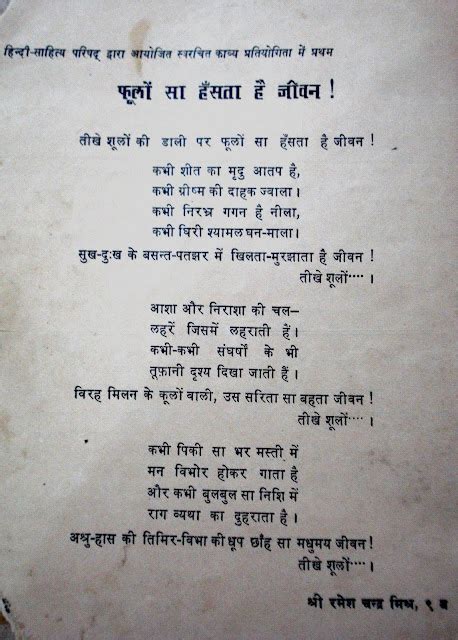 हिन्दी-साहित्य परिषद् द्वारा आयोजित स्वरचित काव्य प्रतियोगिता में प्रथम
फूलों सा हँसता है जीवन !
तीखे शूलों की डाली पर फूलों सा हँसता है जीवन !
कभी शीत का मृदु आतप है,
कभी ग्रीष्म की दाहक ज्वाला ।
कभी निरभ्र गगन है नीला,
कभी घिरी श्यामल घन-माला ।
सुख-दुःख के बसन्त-पतझर में खिलता-मुरझाता है जीवन !
तीखे शूलों.... ।
आशा और निराशा की चल—
लहरें जिसमें लहराती हैं ।
कभी-कभी संघर्षों के भी
तूफ़ानी दृश्य दिखा जाती हैं ।
विरह मिलन के कूलों वाली, उस सरिता सा बहता जीवन !
तीखे शूलों.... ।
कभी पिकी सा भर मस्ती में
मन विभोर होकर गाता है
और कभी बुलबुल सा निशि में
राग व्यथा का दुहराता है ।
अश्रु-हास की तिमिर-विभा की धूप छाँह सा मधुमय जीवन !
तीखे शूलों.... ।
श्री रमेश चन्द्र मिश्र, ९ ब